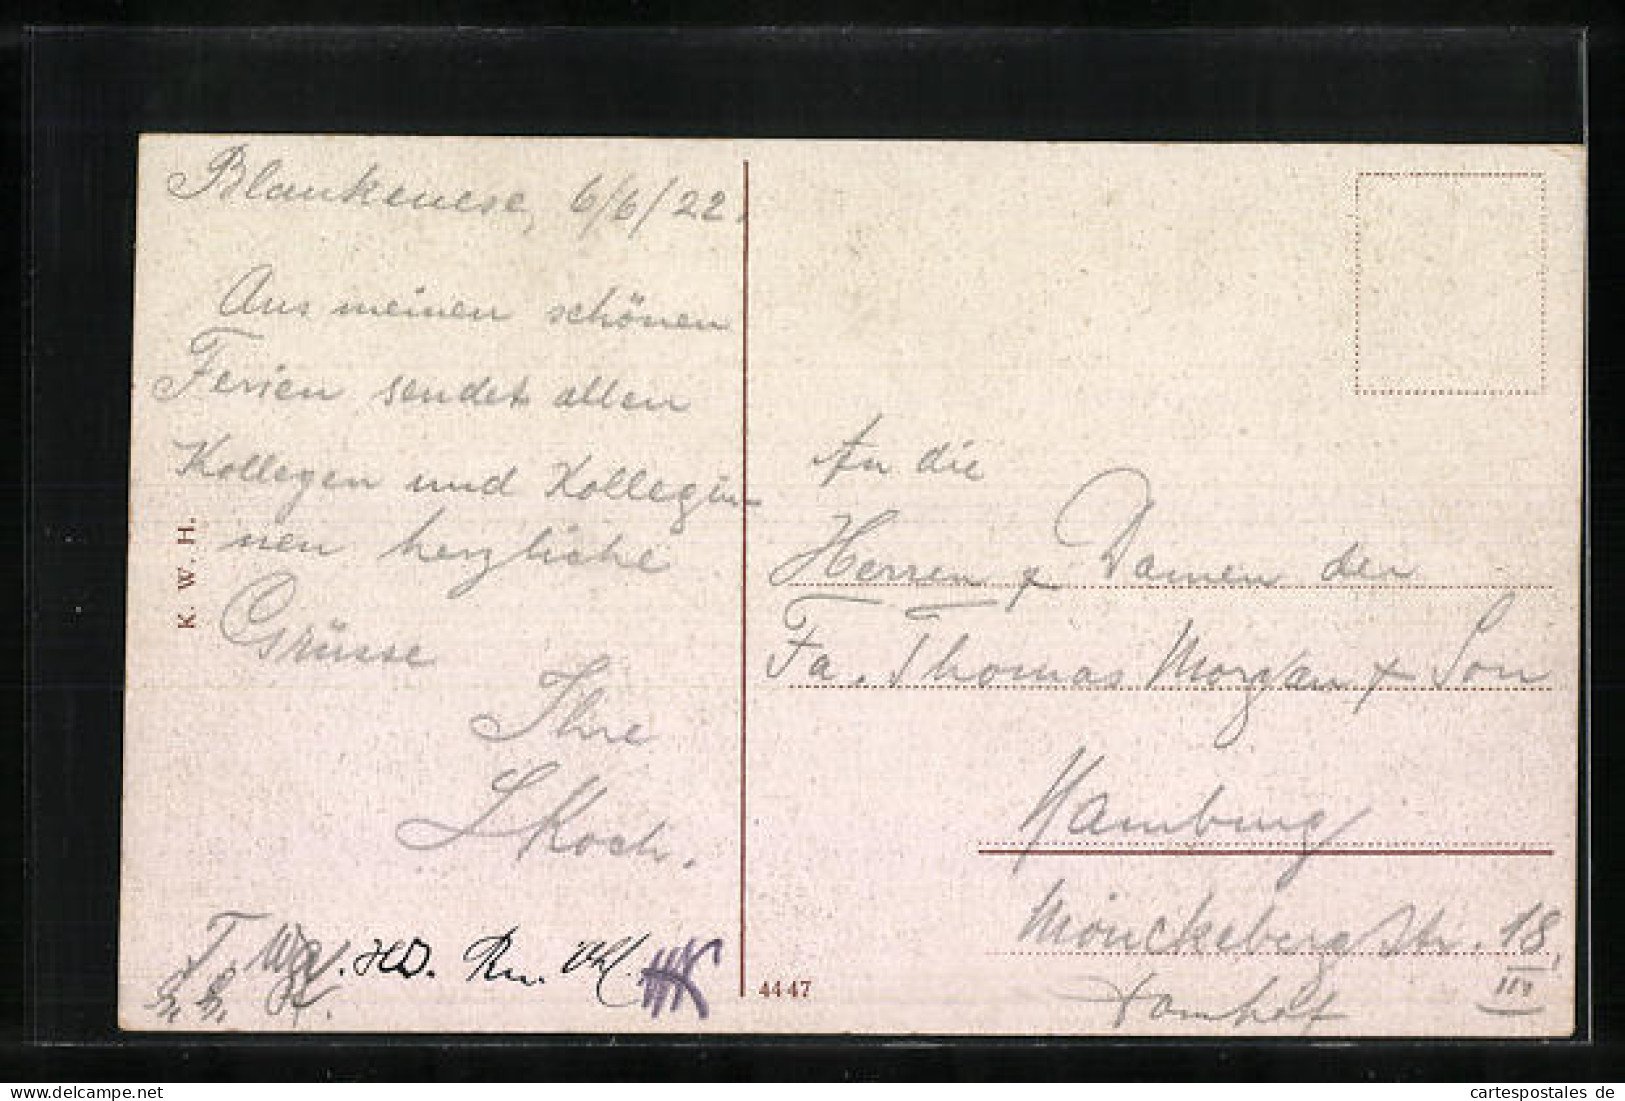 Blankenese, 6/6/22.
Aus meinen schönen
Ferien sendet allen
Kollegen und Kollegin-
nen herzliche
Grüsse
Ihre
L Koch.
K. W. H.
An die
Herren & Damen der
Fa. Thomas Morgan & Son
Hamburg
Mönckeberg Str. 18,
III
Domhof
4447
cartespostales de